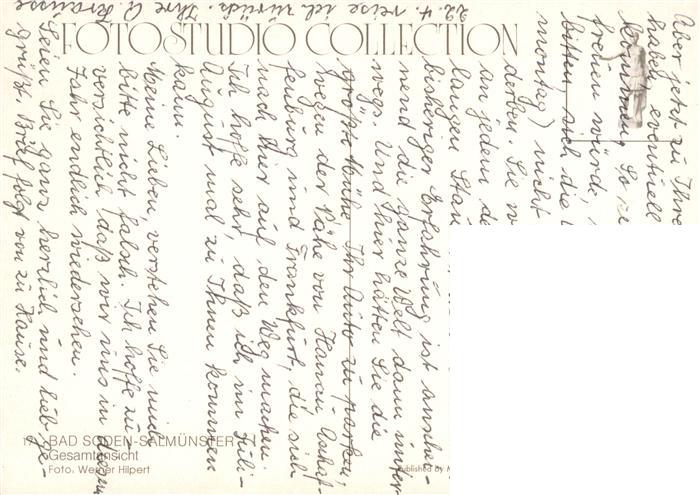 Aber jetzt zu Ihre
habe, eventuell
kommen. So
freuen würde,
bitten, sich die
montag) nicht
derben. Sie
an jedem de
langen
bisheriger Erfahrung ist
nend die ganze Welt dann unter-
wegs. Und hier hätten Sie die
große Mühe Ihr Auto zu parken,
wegen der Nähe von Hanau, Aschaf-
fenburg und Frankfurt, die sich
nach hier auf den Weg machen.
Ich hoffe sehr, daß ich im Juli-
August mal zu Ihnen kommen
kann.
Meine Lieben, verstehen Sie mich
bitte nicht falsch. Ich hoffe zu-
versichtlich, daß wir uns in diesem
Jahr endlich wiedersehen.
Seien Sie ganz herzlich und lieb ge-
grüßt. Brief folgt von zu Hause.
22.4. reise ich zurück. Ihre A. Krausse
FOTOSTUDIO COLLECTION
BAD SODEN-SALMÜNSTER
Gesamtansicht
Foto: Werner Hilpert
Published by